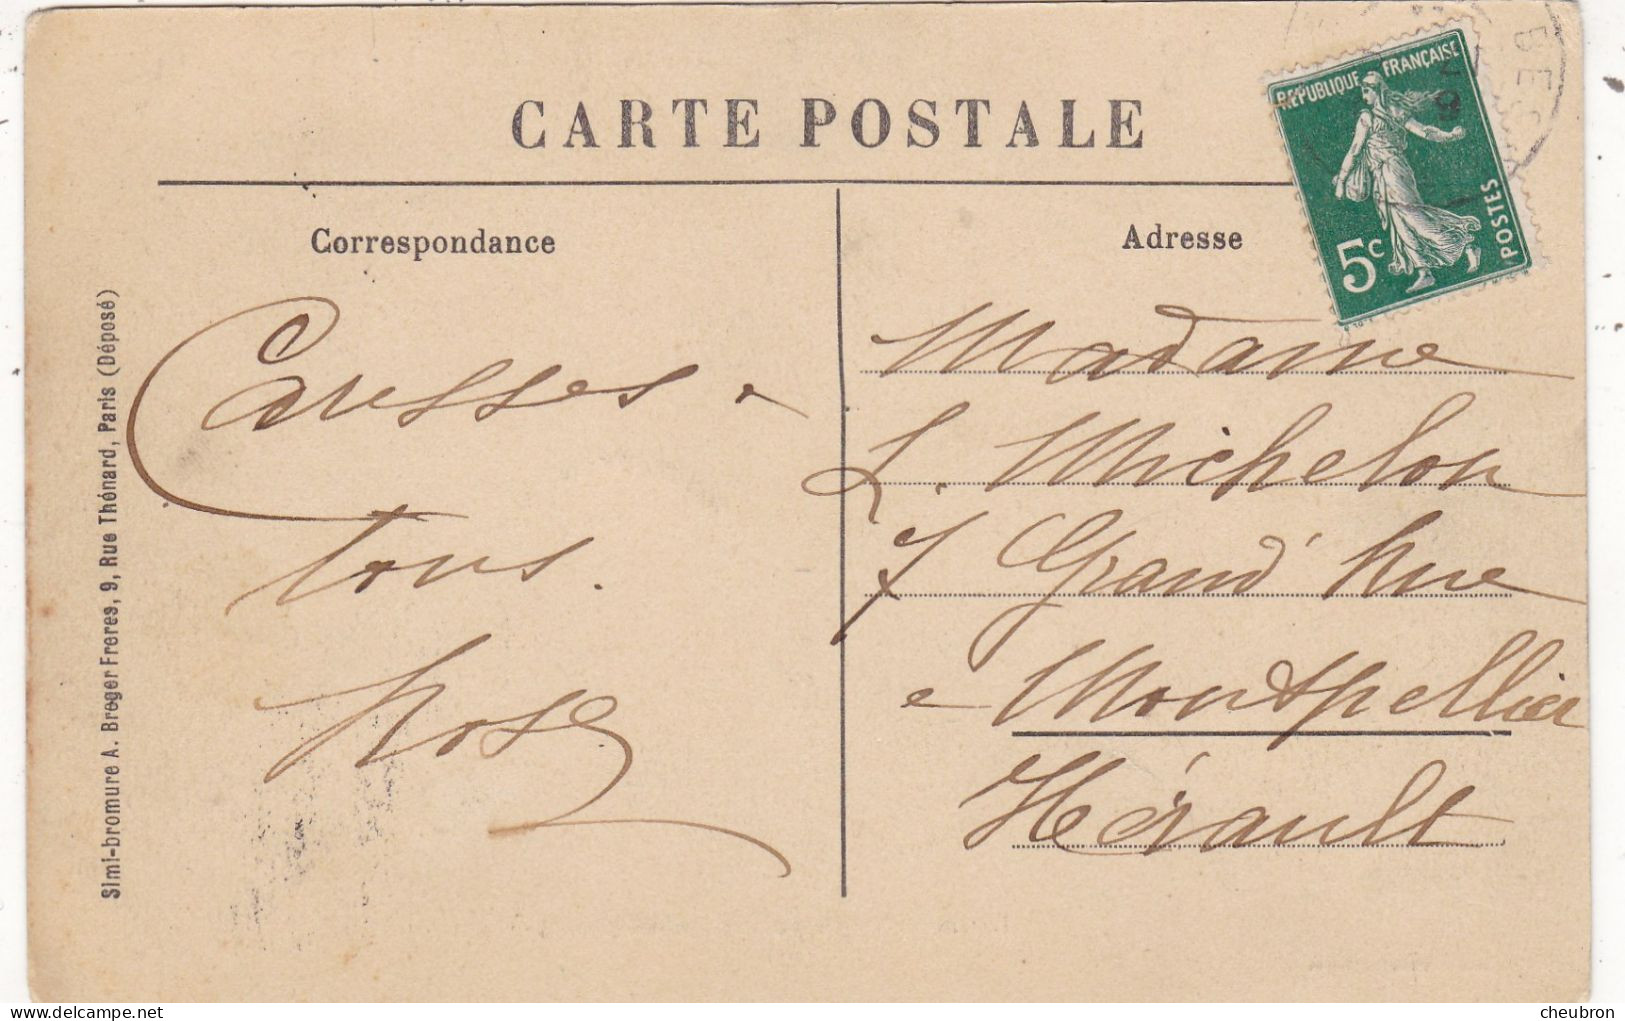 CARTE POSTALE
Correspondance
Caresses à
tous.
Rose
Simi-bromure A. Breger Freres, 9, Rue Thénard, Paris (Déposé)
Adresse
RÉPUBLIQUE FRANÇAISE
POSTES
5c
Madame
L. Michelon
7 Grand' Rue
Montpellier
Hérault
cheubron